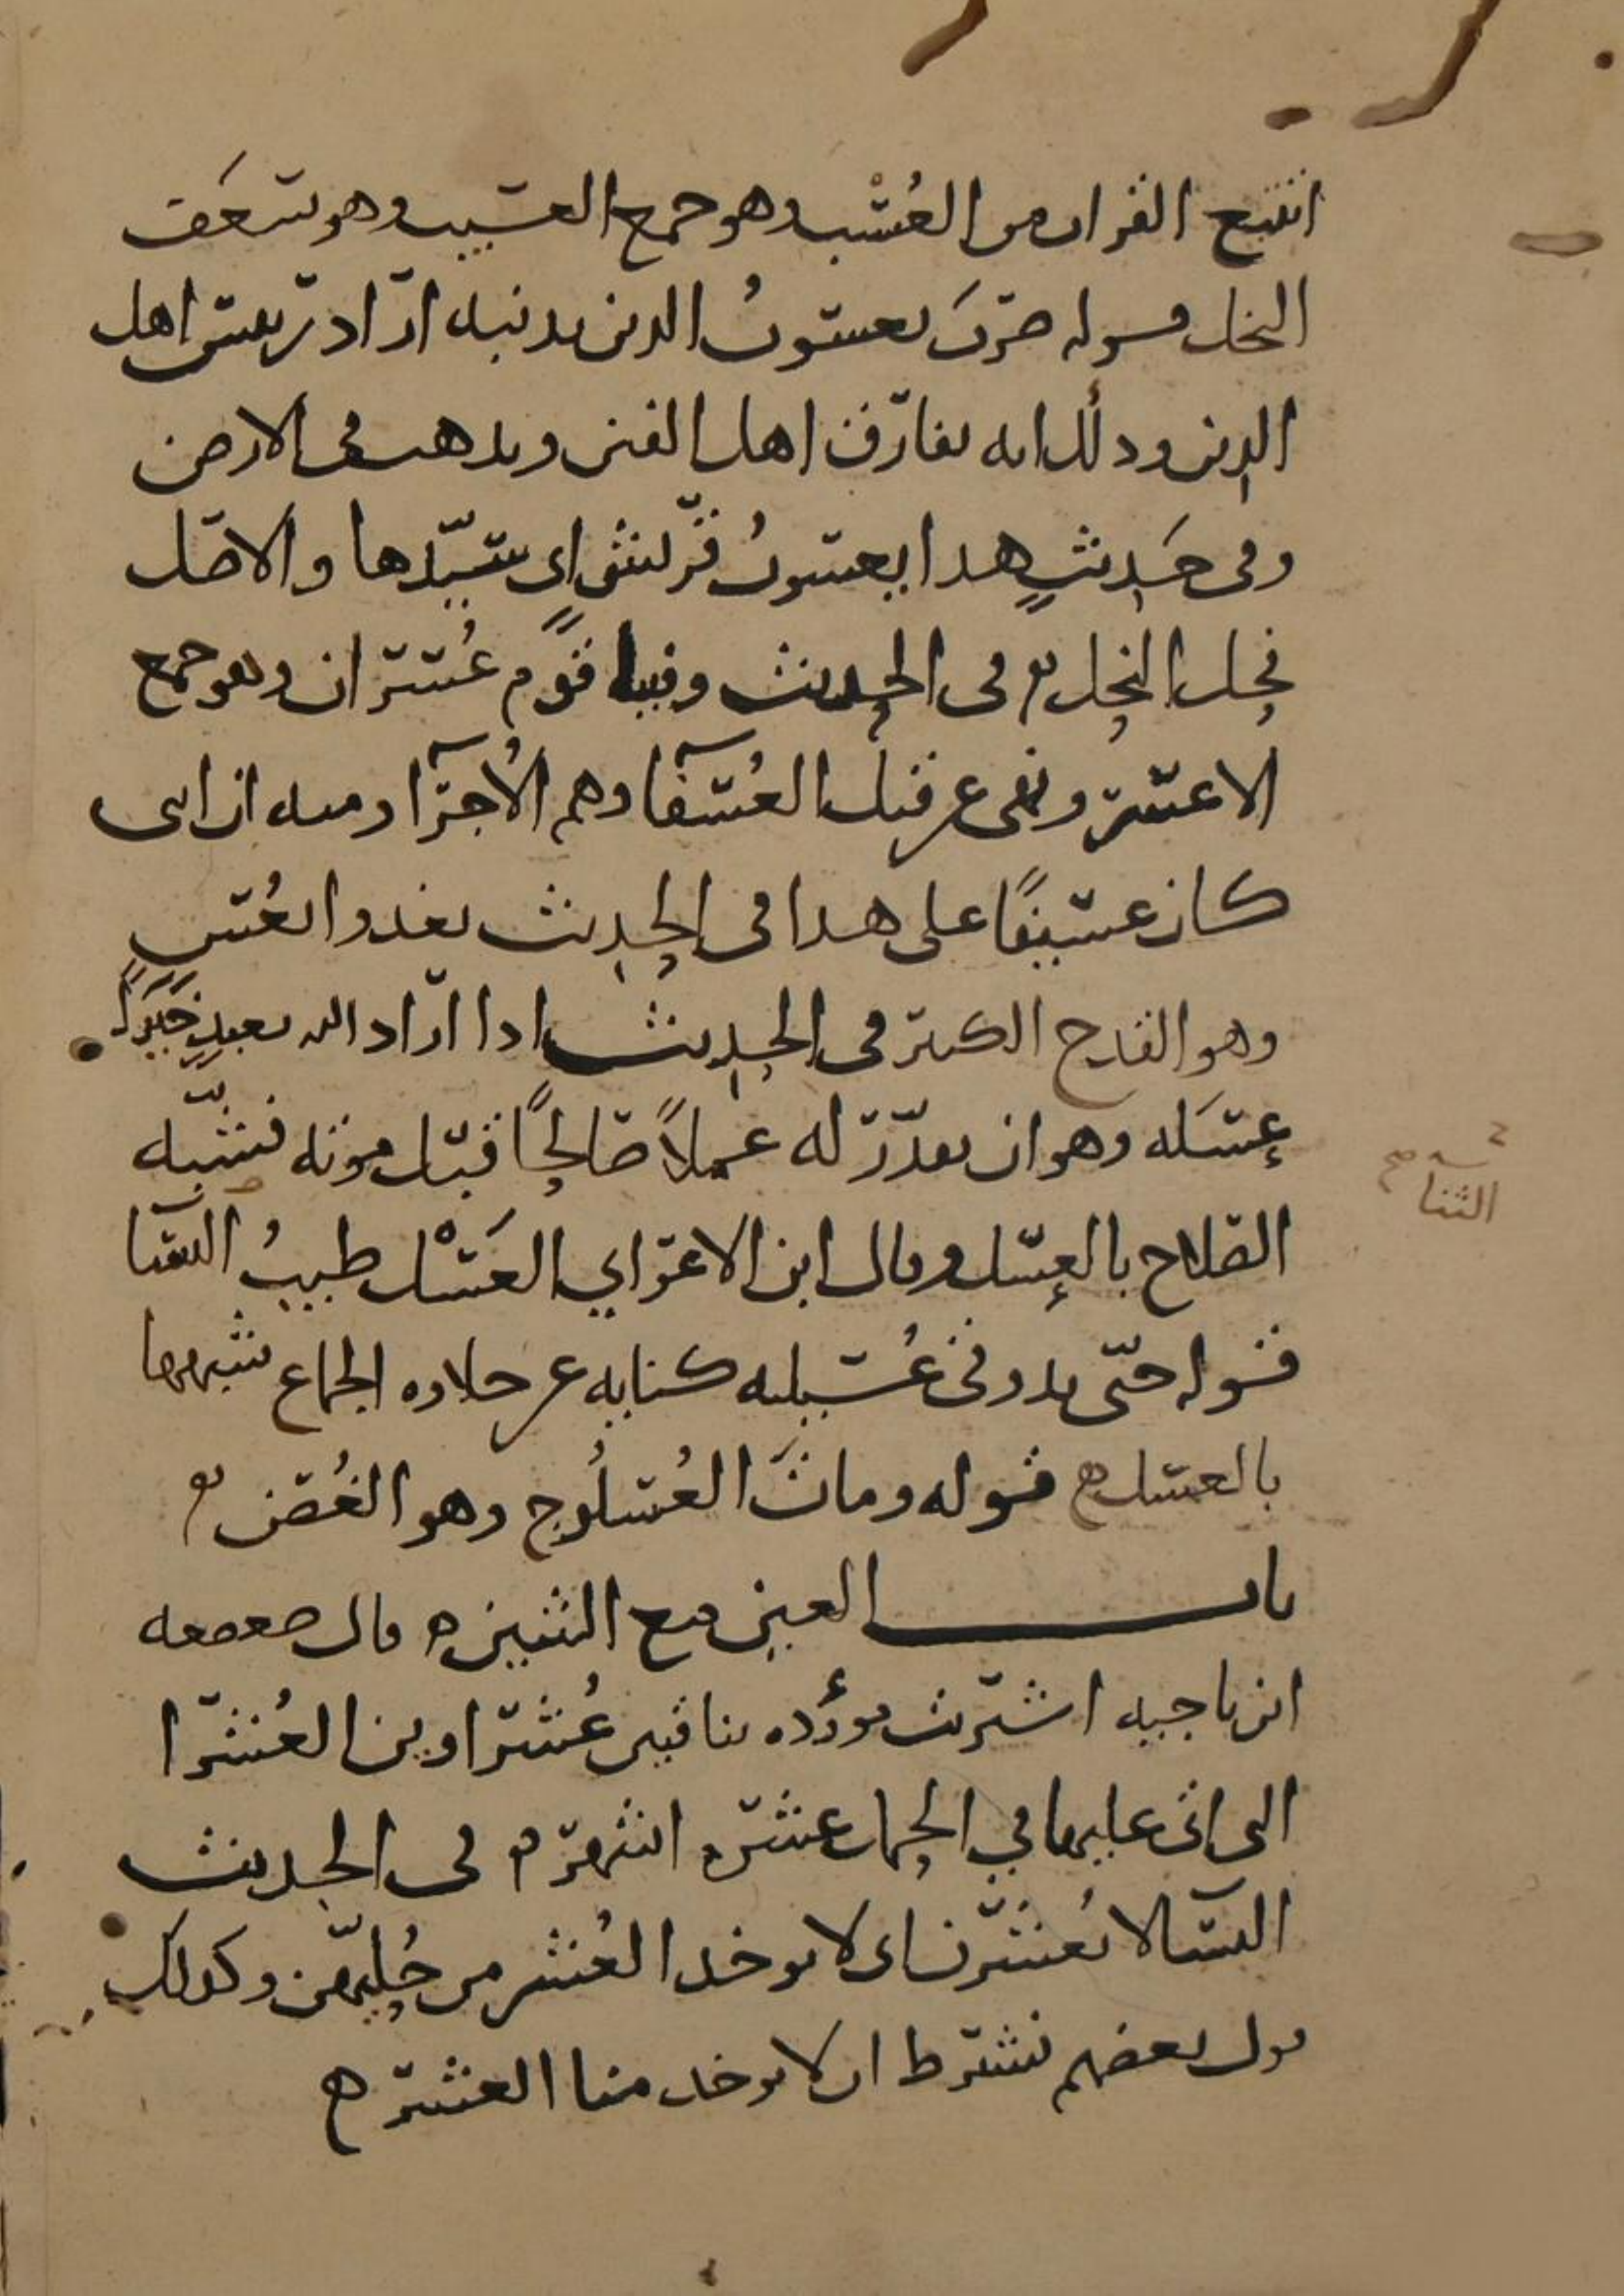 اتتبع القران من العُسْب وهو جمع العسيب وهو سَعَف
النخل قوله ضَرَبَ يعسوبُ الدين بذنبه اراد رييس اهل
الدين وذلك انه يفارق اهل الفتن ويذهب في الارض
وفي حَدِيثٍ هذا يعسوبُ قريش اي سَيِّدها والاصل
فحل النحل في الحديث وفيها قَوْم عُسْران وهو جمع
الاعسر ونهى عن قتل العُسَفَآ وهم الأُجَرَآ ومنه ان ابني
كان عسيفًا على هذا في الحديث يغدوا بعُس
وهو القدح الكبير في الحديث اذا اراد الله بعبدٍ خَيْرًا
عسَله وهو ان يقدّر له عملاً صالحًا قبل موته فشبّه
الصلاح بالعسل وقال ابن الاعرابي العَسْل طيبُ الثنا
الثنا صح
قوله حتّى يذوق عُسيلته كناية عن حلاوه الجماع شبهها
بالعسل قوله ومات العُسلُوج وهو الغُصن
باب العين مع الشين قال صعصعه
ابن ناجيه اشتريت موؤده بناقتين عُشَراوين العُشَرا
التي اتى عليها في الحمل عشره اشهر في الحديث
النسا لا يُعشّرن اي لا يوخذ العُشر من حُليهّن وكذلك
قول بعضهم نشترط ان لا يوخذ منا العشر